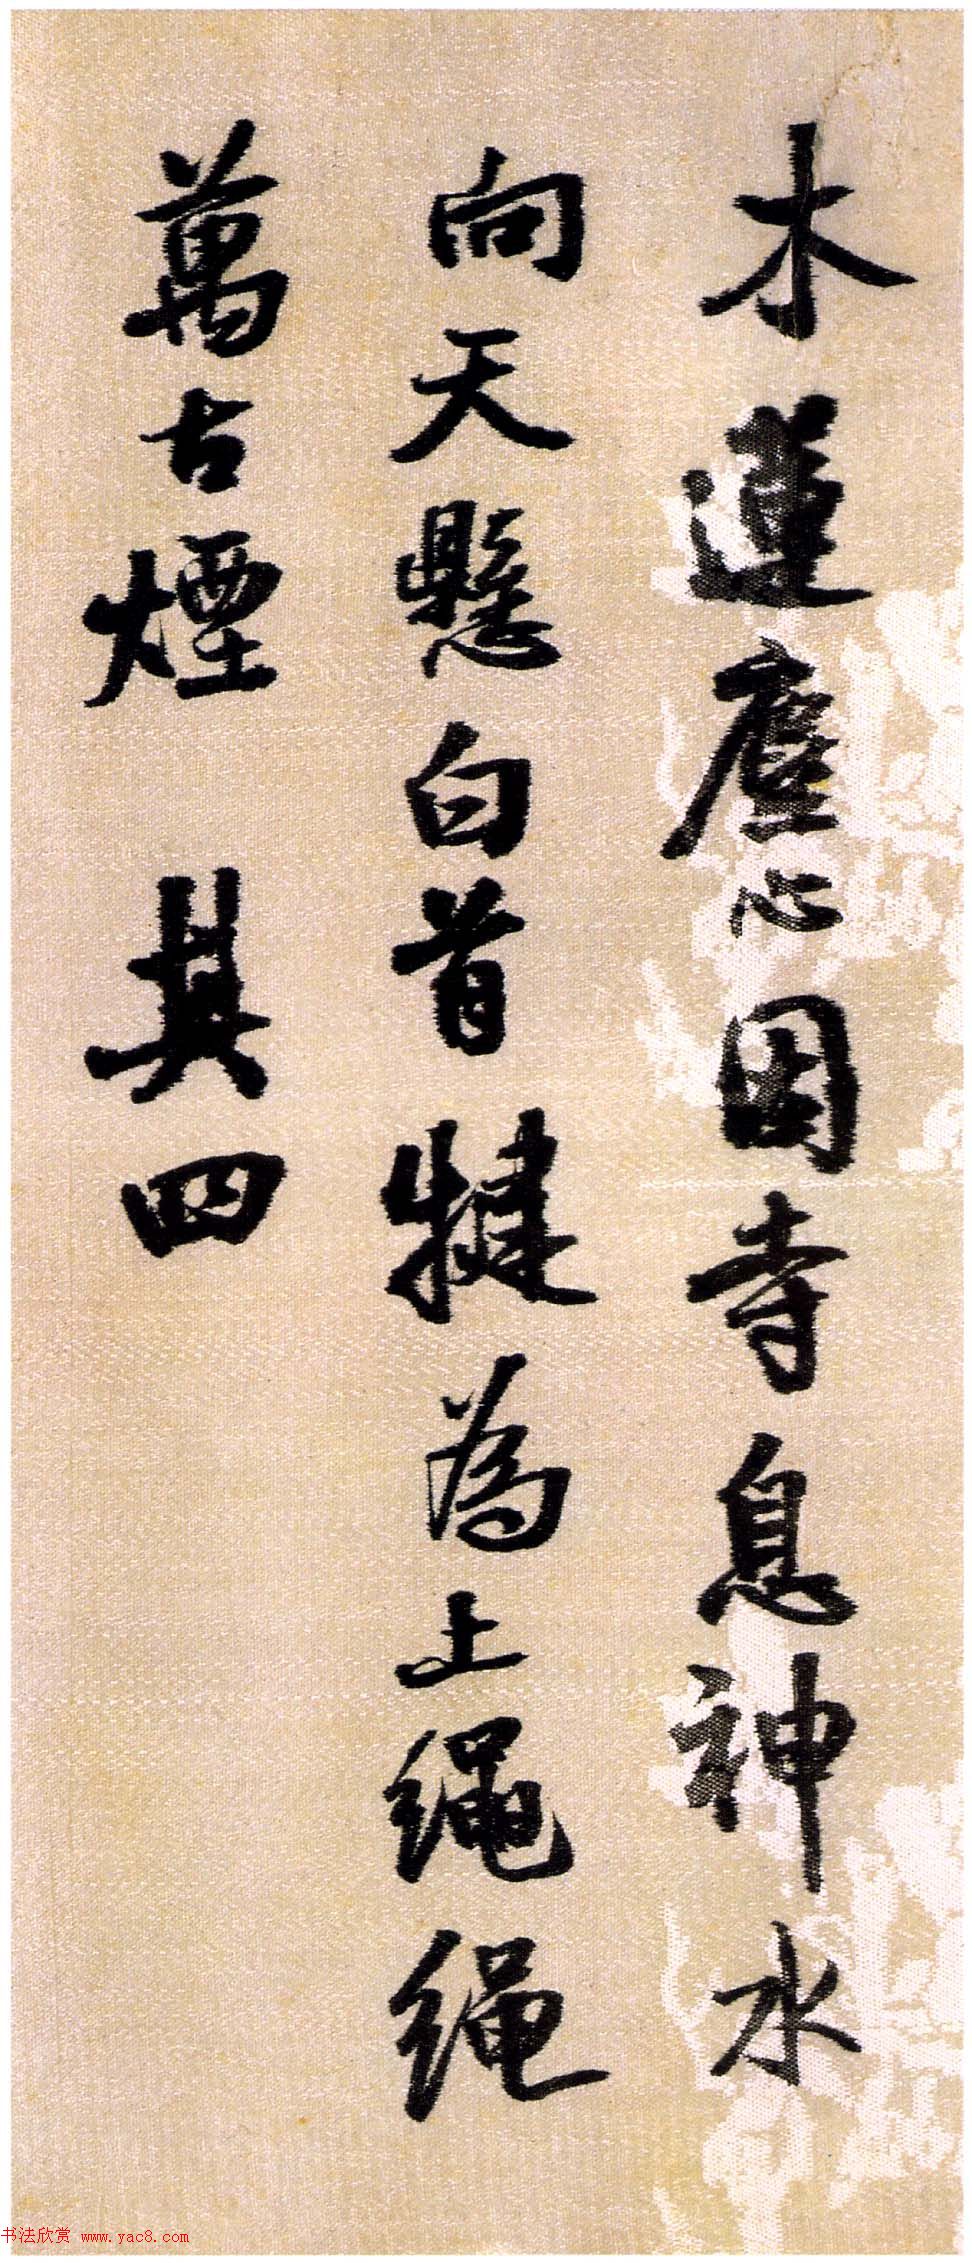 木蓮塵心因寺息神水
向天懸白首犍為上繩繩
萬古煙 其四
书法欣赏 www.yac8.com